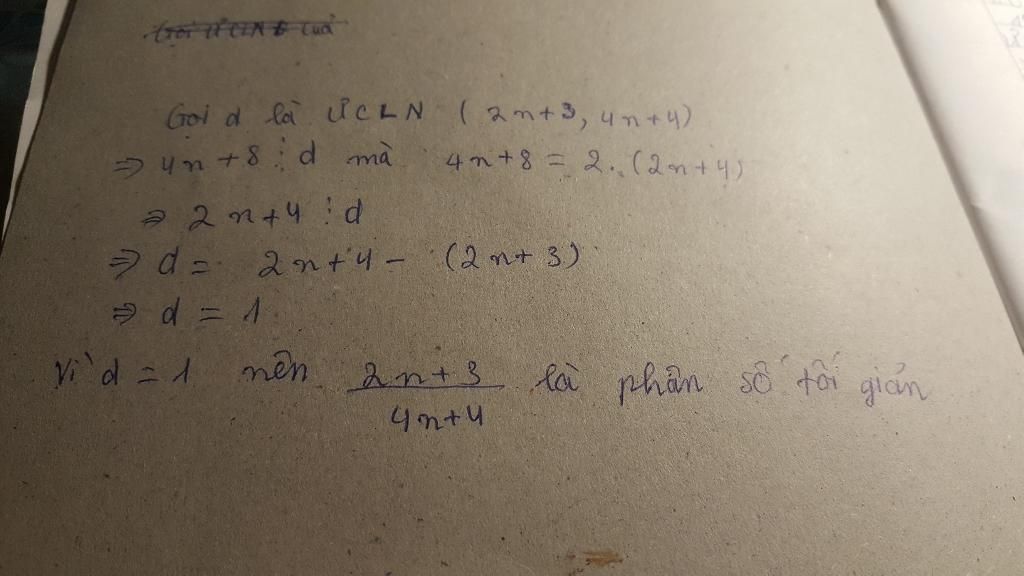 Gọi ƯCLN của
Gọi d là ƯCLN (2n+3, 4n+4)
⇒ 4n+8 ⋮ d mà 4n+8 = 2.(2n+4)
⇒ 2n+4 ⋮ d
⇒ d = 2n+4 - (2n+3)
⇒ d = 1
Vì d = 1 nên 2n+3 là phân số tối giản
4n+4